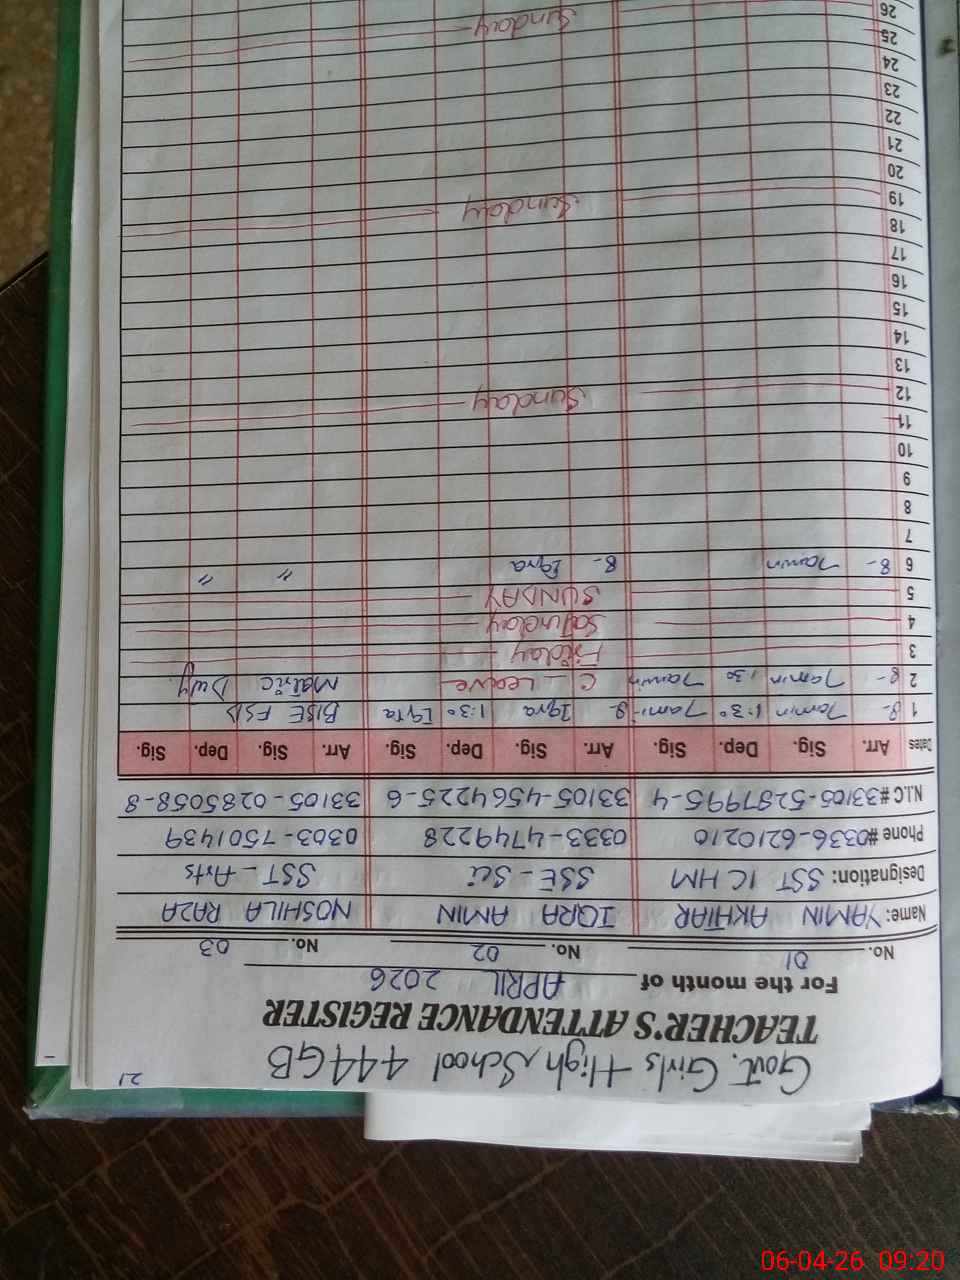 21
Govt. Girls High School 444GB
TEACHER'S ATTENDANCE REGISTER
For the month of APRIL 2026
No. 01 No. 02 No. 03
Name: YAMIN AKHTAR IQRA AMIN NOSHILA RAZA
Designation: SST IC HM SSE - Sci SST - Arts
Phone #0336-6210210 0333-4749228 0303-7501439
N.I.C # 33105-5287995-4 33105-4564225-6 33105-0285058-8
Dates Arr. Sig. Dep. Sig. Arr. Sig. Dep. Sig. Arr. Sig. Dep. Sig.
1 8- Yamin 1:30 Yami 8- Iqra 1:30 Iqra BISE FSD
2 8- Yamin 1:30 Yamin C - Leave Matric Duty.
3 Friday
4 Saturday
5 SUNDAY
6 8- Yamin 8- Iqra " "
7
8
9
10
11
12 Sunday
13
14
15
16
17
18
19 Sunday
20
21
22
23
24
25
26 Sunday
06-04-26 09:20